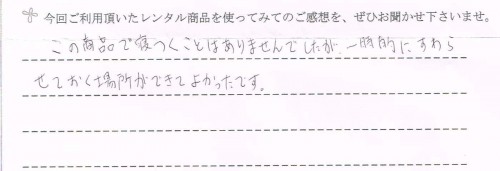 今回ご利用頂いたレンタル商品を使ってみてのご感想を、ぜひお聞かせ下さいませ。
この商品で寝つくことはありませんでしたが、一時的にすわら
せておく場所ができてよかったです。